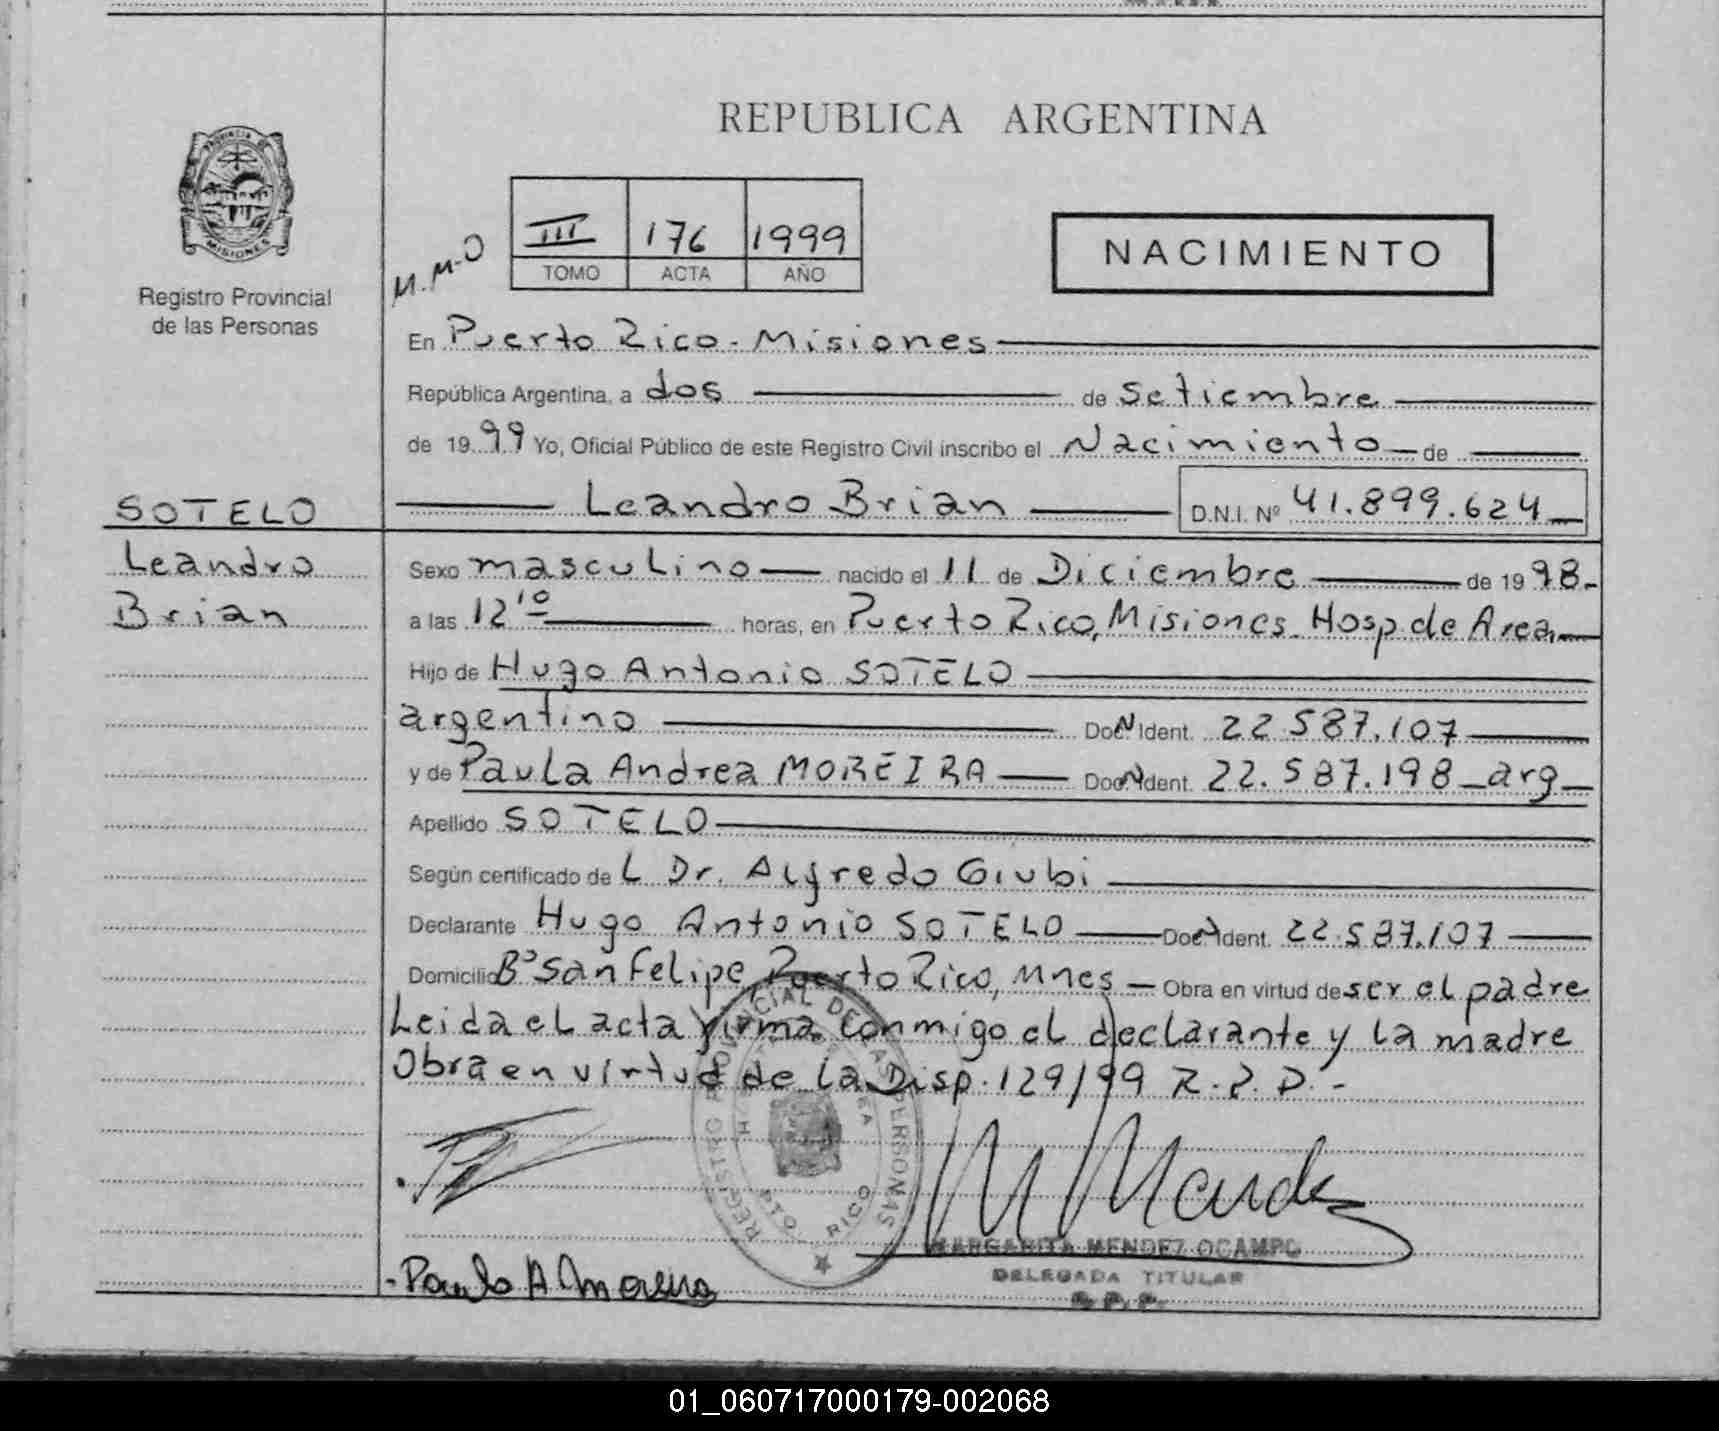 REPUBLICA ARGENTINA
PROVINCIA DE MISIONES
Registro Provincial
de las Personas
M.M.O
III 176 1999
TOMO ACTA AÑO
NACIMIENTO
En Puerto Rico - Misiones
República Argentina, a dos de Setiembre
de 1999 Yo, Oficial Público de este Registro Civil inscribo el Nacimiento de
SOTELO
Leandro Brian D.N.I. Nº 41.899.624
Leandro
Brian
Sexo masculino nacido el 11 de Diciembre de 1998.
a las 12 10 horas, en Puerto Rico, Misiones. Hosp de Area
Hijo de Hugo Antonio SOTELO
argentino Doc. N Ident. 22.587.107
y de Paula Andrea MOREIRA Doc. N Ident. 22.587.198 arg
Apellido SOTELO
Según certificado de L Dr. Alfredo Giubi
Declarante Hugo Antonio SOTELO Doc. N Ident. 22.587.107
Domicilio Bº San Felipe Puerto Rico, Mnes Obra en virtud de ser el padre
Leida el acta firma conmigo el declarante y la madre
Obra en virtud de la Disp. 129/99 R.P.P.-
REGISTRO PROVINCIAL DE LAS PERSONAS
PTO. RICO
Paula A Moreira
M Mendez
MARGARITA MENDEZ OCAMPO
DELEGADA TITULAR
R.P.P.
01_060717000179-002068